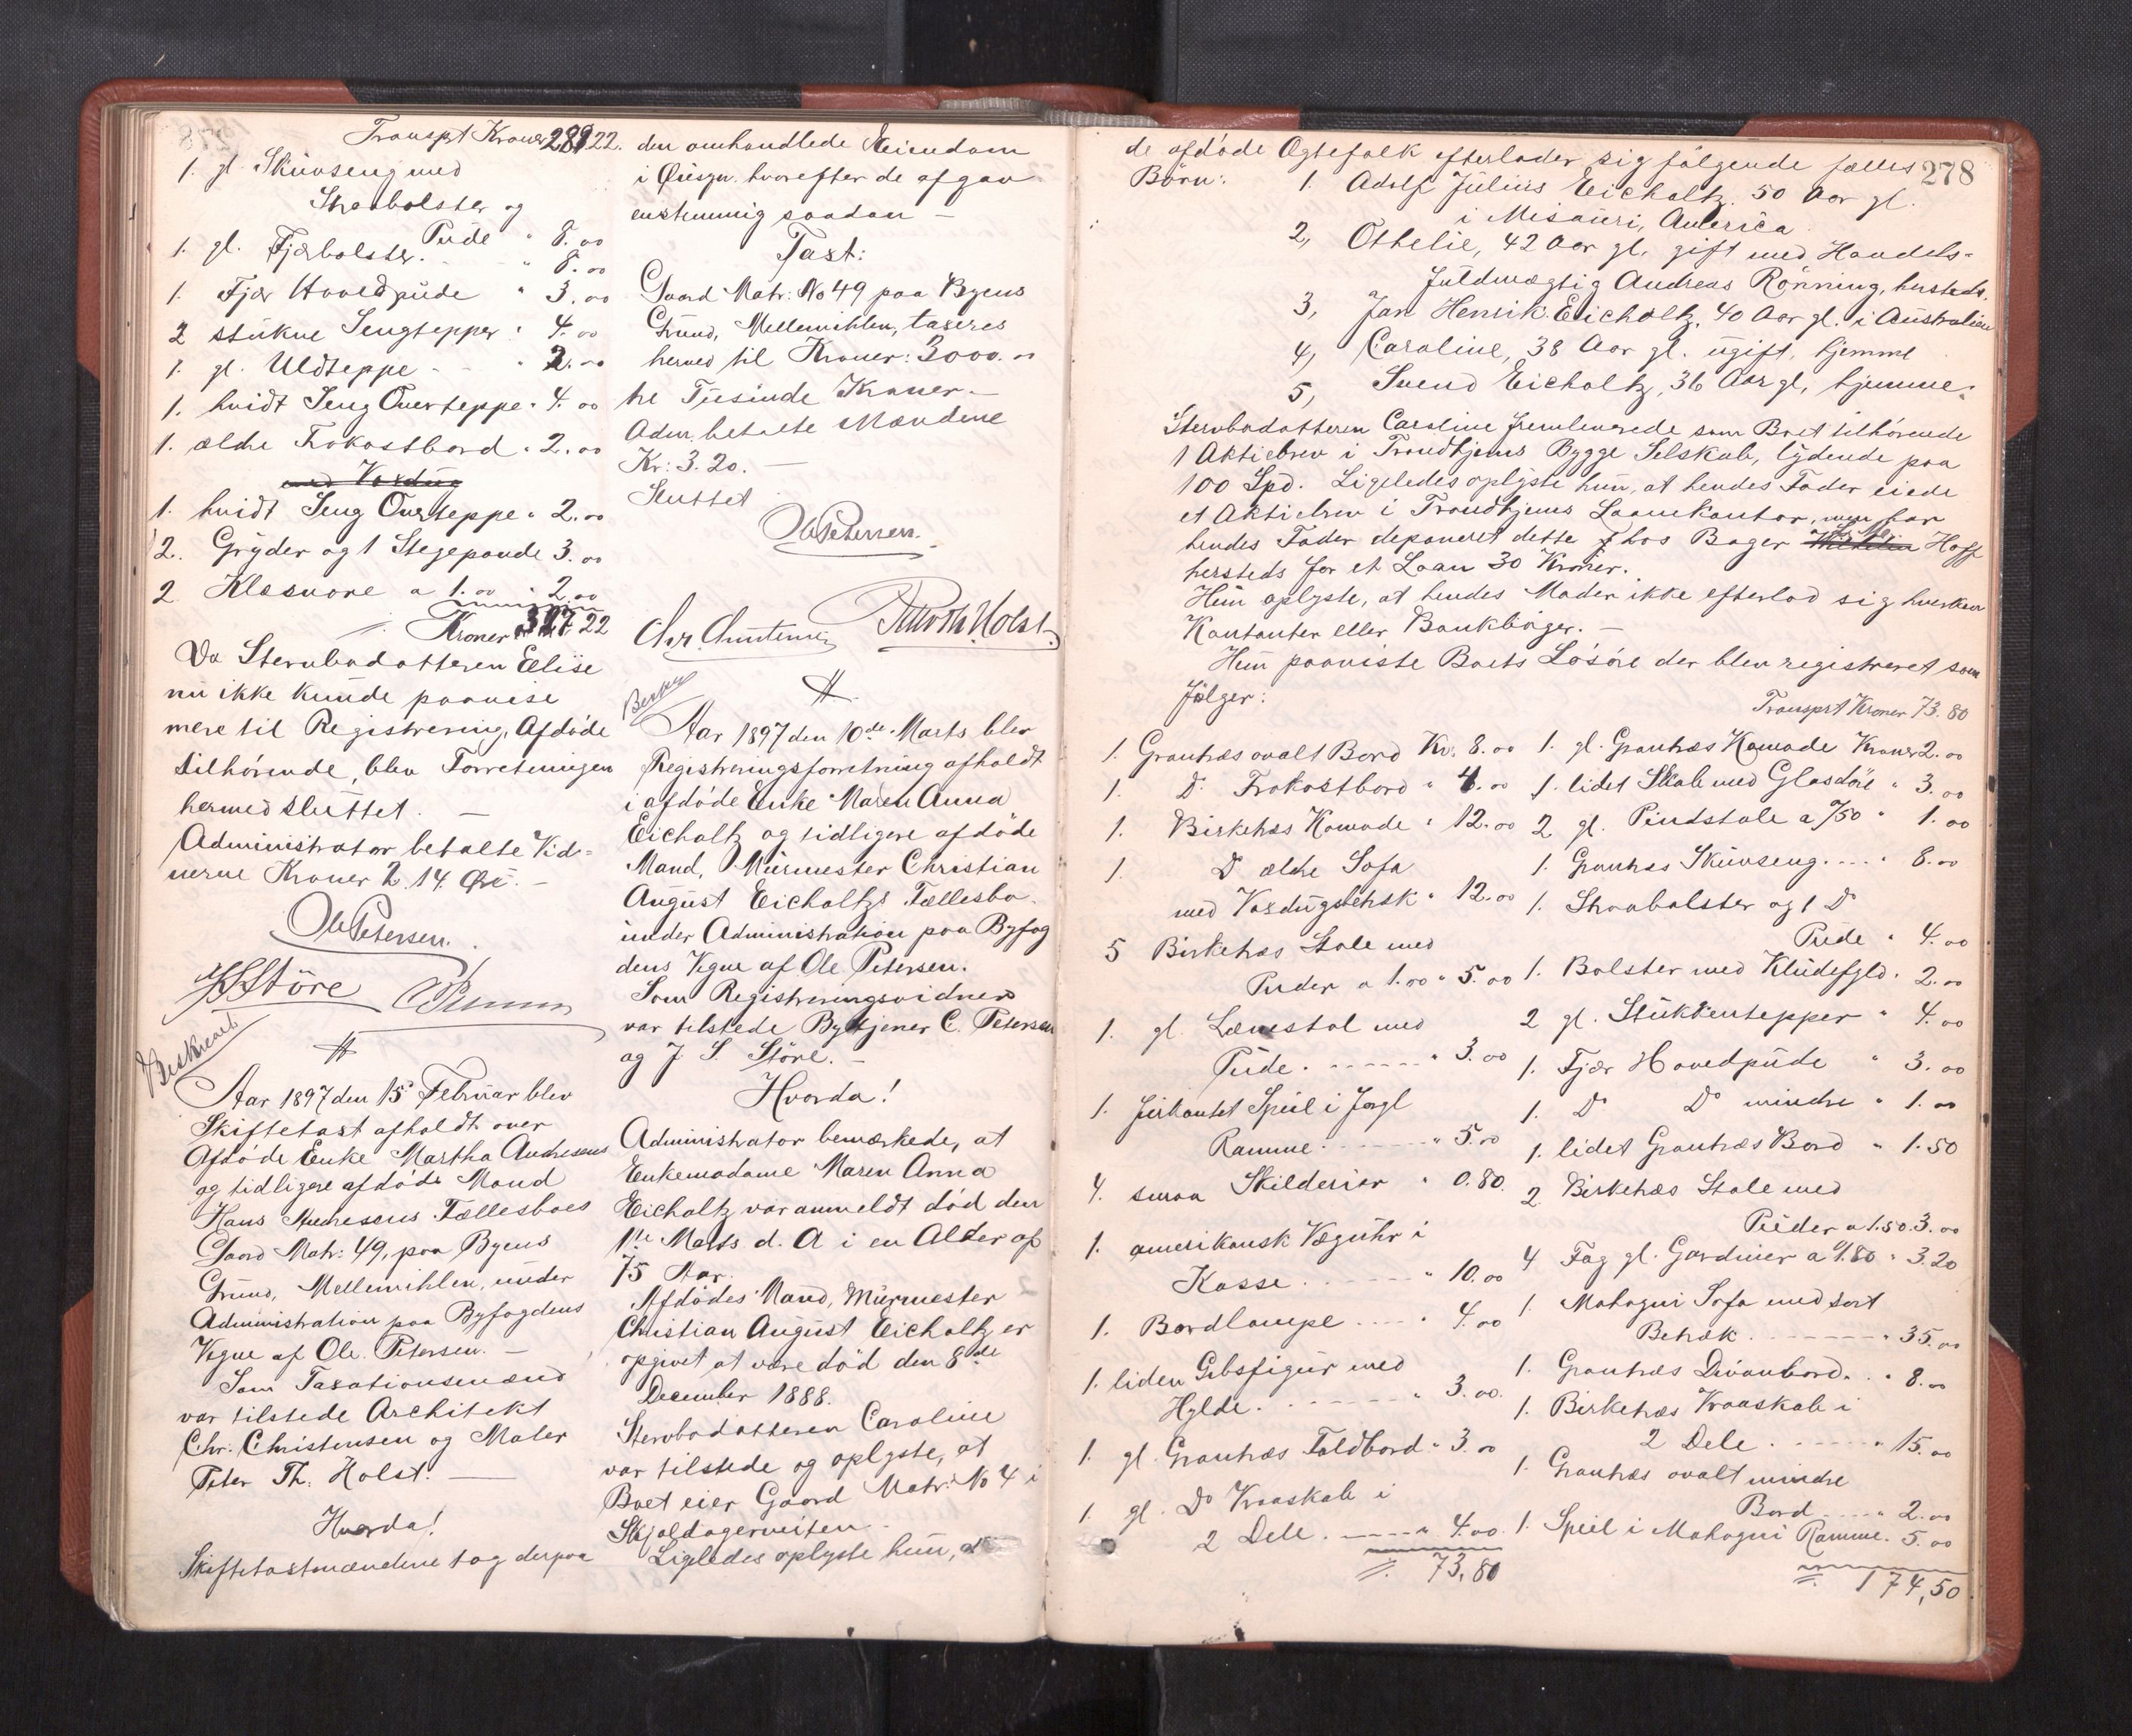 Transprt Kroner 289 22.
1. gl. Skuvseng med
Straabolster og
Pude " 8.00
1. gl. Fjærbolster. - - " 8.00
1. Fjær Hovedpude " 3.00
2 stukne Sengtepper " 4.00
1. gl. Uldteppe - - " 2.00
1. hvidt Seng Overteppe " 4.00
1. ældre Frokostbord " 2.00
med Voxdug
1. hvidt Seng Overteppe " 2.00
2. Gryder og 1 Stegepande 3.00
2 Klæsvore a 1.00 " 2.00
Kroner 327 22
Da Stervbodatteren Elise
nu ikke kunde paavise
mere til Registrering, Afdøde
tilhørende, blev Forretningen
hermed sluttet. —
Administrator betalte Vid-
nerne Kroner 2. 14. Øre. —
Ole Petersen.
J S Støre
Beskrevet
Aar 1897 den 15 Februar blev
Skiftetaxt afholdt over
Afdøde Enke Martha Andresens
og tidligere afdøde Mand
Hans Andresens Fællesboes
Gaard Matr: 49, paa Byens
Grund, Mellemihlen, under
Administration paa Byfogdens
Vegne af Ole Petersen. —
Som Taxationsmænd
var tilstede Architekt
Chr. Christensen og Maler
Peter Th. Holst. —
Hvorda!
Skiftetaxtmændene tog derpaa
den omhandlede Eiendom
i Øiesyn. hvorefter de afgav
enstemmig saadan —
Taxt:
Gaard Matr: No 49 paa Byens
Grund, Mellemihlen, taxeres
herved til Kroner: 3000.00
tre Tusinde Kroner. —
Adm. betalte Mændene
Kr: 3. 20. —
Sluttet
Ole Petersen.
Chr. Christensen
Peter Th. Holst.
Beskr
Aar 1897 den 10de Marts blev
Registreringsforretning afholdt
i afdøde Enke Maren Anna
Eicholtz og tidligere afdøde
Mand, Murmester Christian
August Eicholtz's Fællesbo.
under Administration paa Byfog
dens Vegne af Ole Petersen.
Som Registreringsvidner
var tilstede Bytjener C. Petersen
og J. S. Støre. —
Hvorda!
Administrator bemærkede, at
Enkemadame Maren Anna
Eicholtz var anmeldt død den
1te Marts d. A i en Alder af
75 Aar.
Afdødes Mand, Murmester
Christian August Eicholtz er
opgivet at være død den 8de
December 1888.
Stervbodatteren Caroline
var tilstede og oplyste, at
Boet eier Gaard Matr: No 4 i
Skjoldagerveiten.
Ligeledes oplyste hun, at
278
de afdøde Ægtefolk efterlader sig følgende fælles
Børn: 1. Adolf Julius Eicholtz. 50 Aar gl.
i Misauri, America.
2, Othelie, 42 Aar gl, gift med Handels-
fuldmægtig Andreas Rønning, hersteds.
3, Jan Henrik Eicholtz, 40 Aar gl. i Australien
4, Caroline, 38 Aar gl. ugift, hjemme
5, Svend Eicholtz, 36 Aar gl, hjemme.
Stervbodatteren Caroline fremleverede som Boet tilhørende
1 Aktiebrev i Trondhjems Bygge Selskab, lydende paa
100 Spd. Ligeledes oplyste hun, at hendes Fader eiede
et Aktiebrev i Trondhjems Laanekontor, men har
hendes Fader deponeret dette hos Bager Hoff
hersteds for et Laan 30 Kroner.
Hun oplyste, at hendes Moder ikke efterlod sig hverken
Kontanter eller Bankbøger. —
Hun paaviste Boets Løsøre der blev registreret som
følger:
1. Grantræs ovalt Bord Kr. 8.00
1. Do Frokostbord " 4.00
1. Birketræs Komode " 12.00
1. Do ældre Sofa
med Voxdugsbetræk " 12.00
5 Birketræs Stole med
Puder a 1.00 " 5.00
1. gl. Lænestol med
Pude. - - - - - " 3.00
1. firkantet Speil i forgl
Ramme. - - - - " 5.00
4. smaa Skilderier " 0.80.
1. amerikansk Væguhr i
Kasse. - - - - - " 10.00
1. Bordlampe - - - - " 4.00
1. liden Gibsfigur med
Hylde. - - - - - - " 3.00.
1. gl. Grantræs Foldbord " 3.00
1. gl. Do Kraaskab i
2 Dele. - - - - - " 4.00.
73.80
Transprt Kroner 73.80
1. gl. Grantræs Komode Kroner 2.00
1. lidet Skab med Glasdøre " 3.00
2 gl. Pindstole a 0/50 " 1.00
1. Grantræs Skuvseng. - - - " 8.00
1. Straabolster og 1 Do
Pude " 4.00
1. Bolster med Kludefyld. 2.00
2 gl. Stukkentepper " 4.00
1. Fjær Hovedpude " 3.00
1. Do Do mindre " 1.00
1. lidet Grantræs Bord " 1.50
2 Birketræs Stole med
Puder a 1.50. 3.00
4 Fag gl. Gardiner a 0.80 " 3.20
1. Mahogni Sofa med sort
Betræk. - - - - - - " 35.00
1. Grantræs Divanbord. - " 8.00
1. Birketræs Kraaskab i
2 Dele. - - - - - " 15.00
1. Grantræs ovalt mindre
Bord - - - - " 2.00
1. Speil i Mahogni Ramme. 5.00
174,50